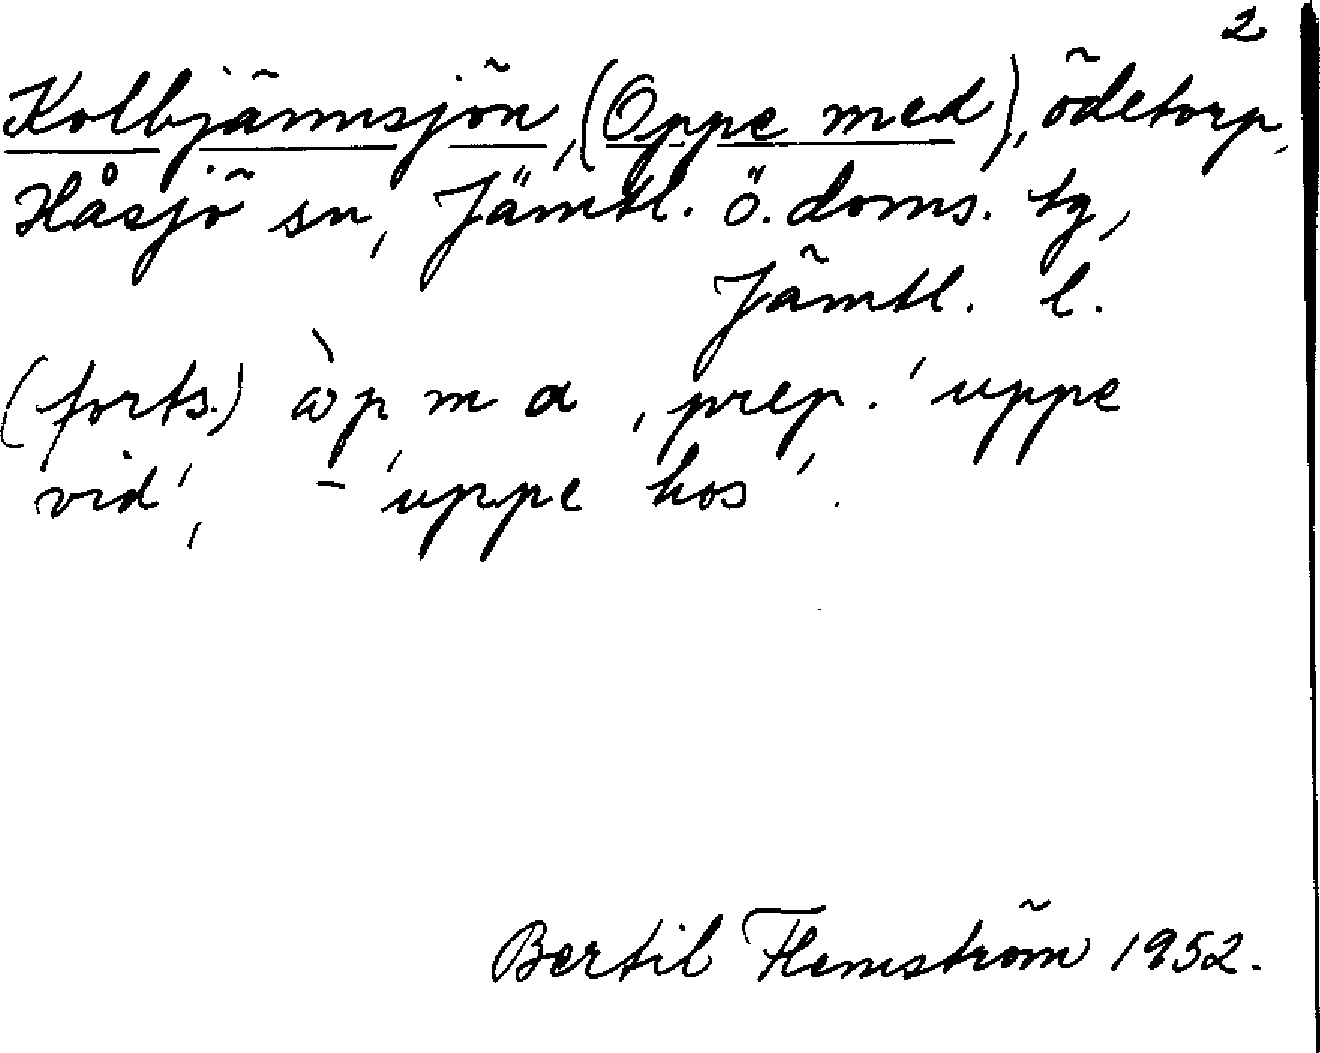 2
Kolbjännsjön, (Oppe med), ödetorp,
Håsjö sn, Jämtl. ö. doms. tg,
Jämtl. l.
(forts.) , prep. 'uppe
vid', – 'uppe hos'.
Bertil Flemström 1952.